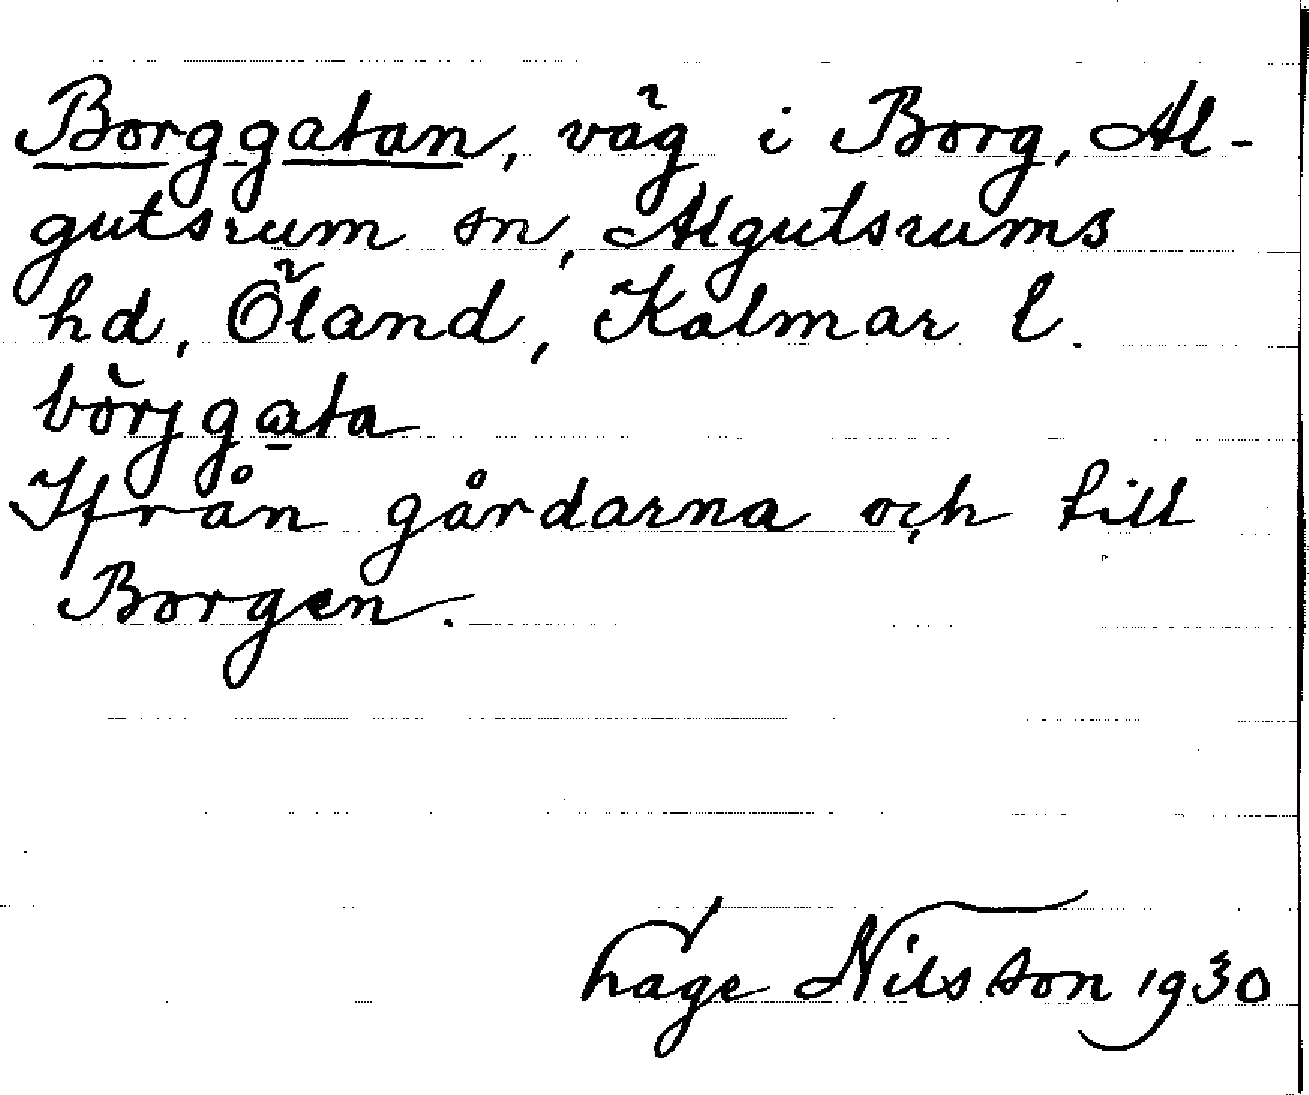 Borggatan, väg i Borg, Al-
gutsrum sn, Algutsrums
hd, Öland, Kalmar l.
börjgata
Ifrån gårdarna och till
Borgen.
Hage Nilsson 1930